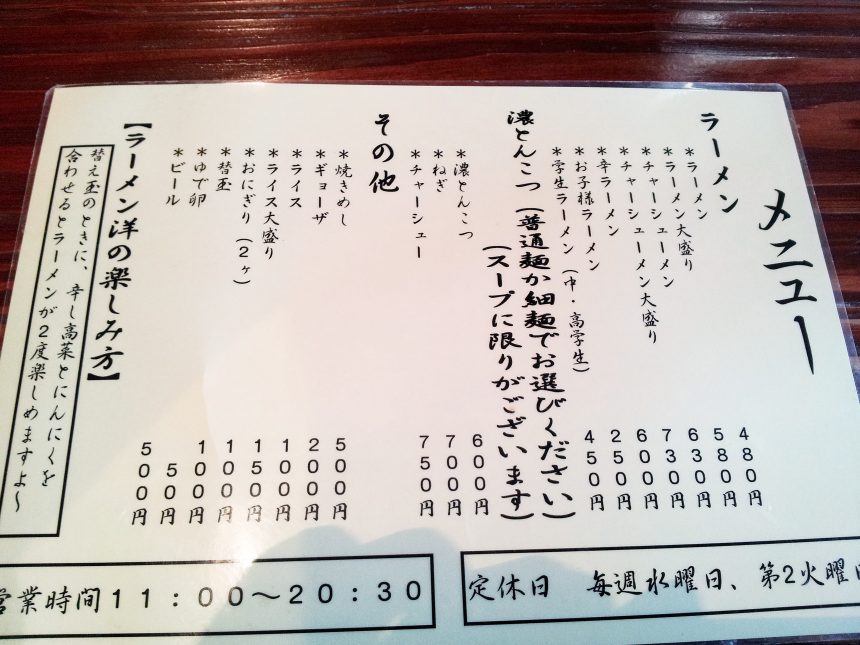 メニュー
ラーメン
*ラーメン 480円
*ラーメン大盛り 580円
*チャーシューメン 630円
*チャーシューメン大盛り 730円
*辛ラーメン 600円
*お子様ラーメン 250円
*学生ラーメン(中・高学生) 450円
濃とんこつ(普通麺か細麺でお選びください)
(スープに限りがございます)
*濃とんこつ 600円
*ねぎ 700円
*チャーシュー 750円
その他
*焼きめし 500円
*ギョーザ 200円
*ライス 100円
*ライス大盛り 150円
*おにぎり(2ヶ) 100円
*替玉 100円
*ゆで卵 50円
*ビール 500円
【ラーメン洋の楽しみ方】
替え玉のときに、辛し高菜とにんにくを
合わせるとラーメンが2度楽しめますよ〜
営業時間11:00〜20:30
定休日 毎週水曜日、第2火曜日